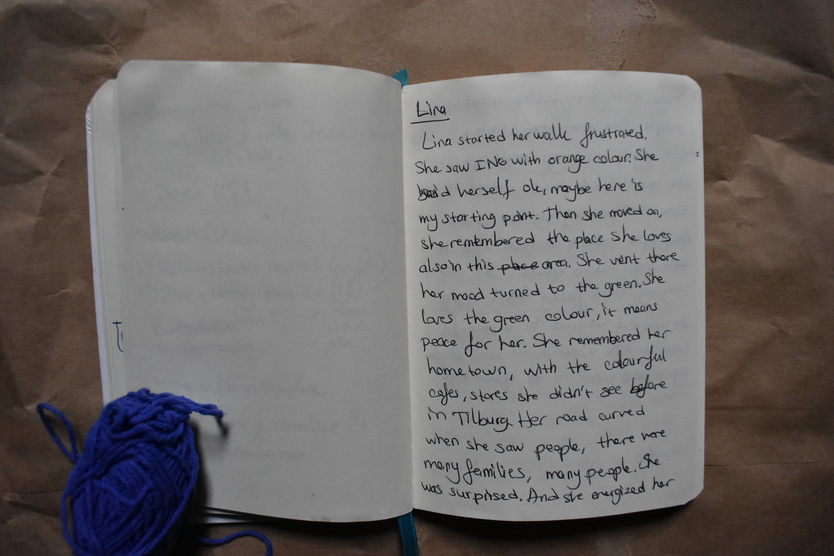 Lina
Lina started her walk frustrated.
She saw ING with orange colour. She
said herself ok, maybe here is
my starting point. Then she moved on,
she remembered the place she loves
also in this place area. She went there
her mood turned to the green. She
loves the green colour, it means
peace for her. She remembered her
hometown, with the colourful
cafes, stores she didn't see before
in Tilburg. Her road curved
when she saw people, there were
many families, many people. She
was surprised. And she energized her